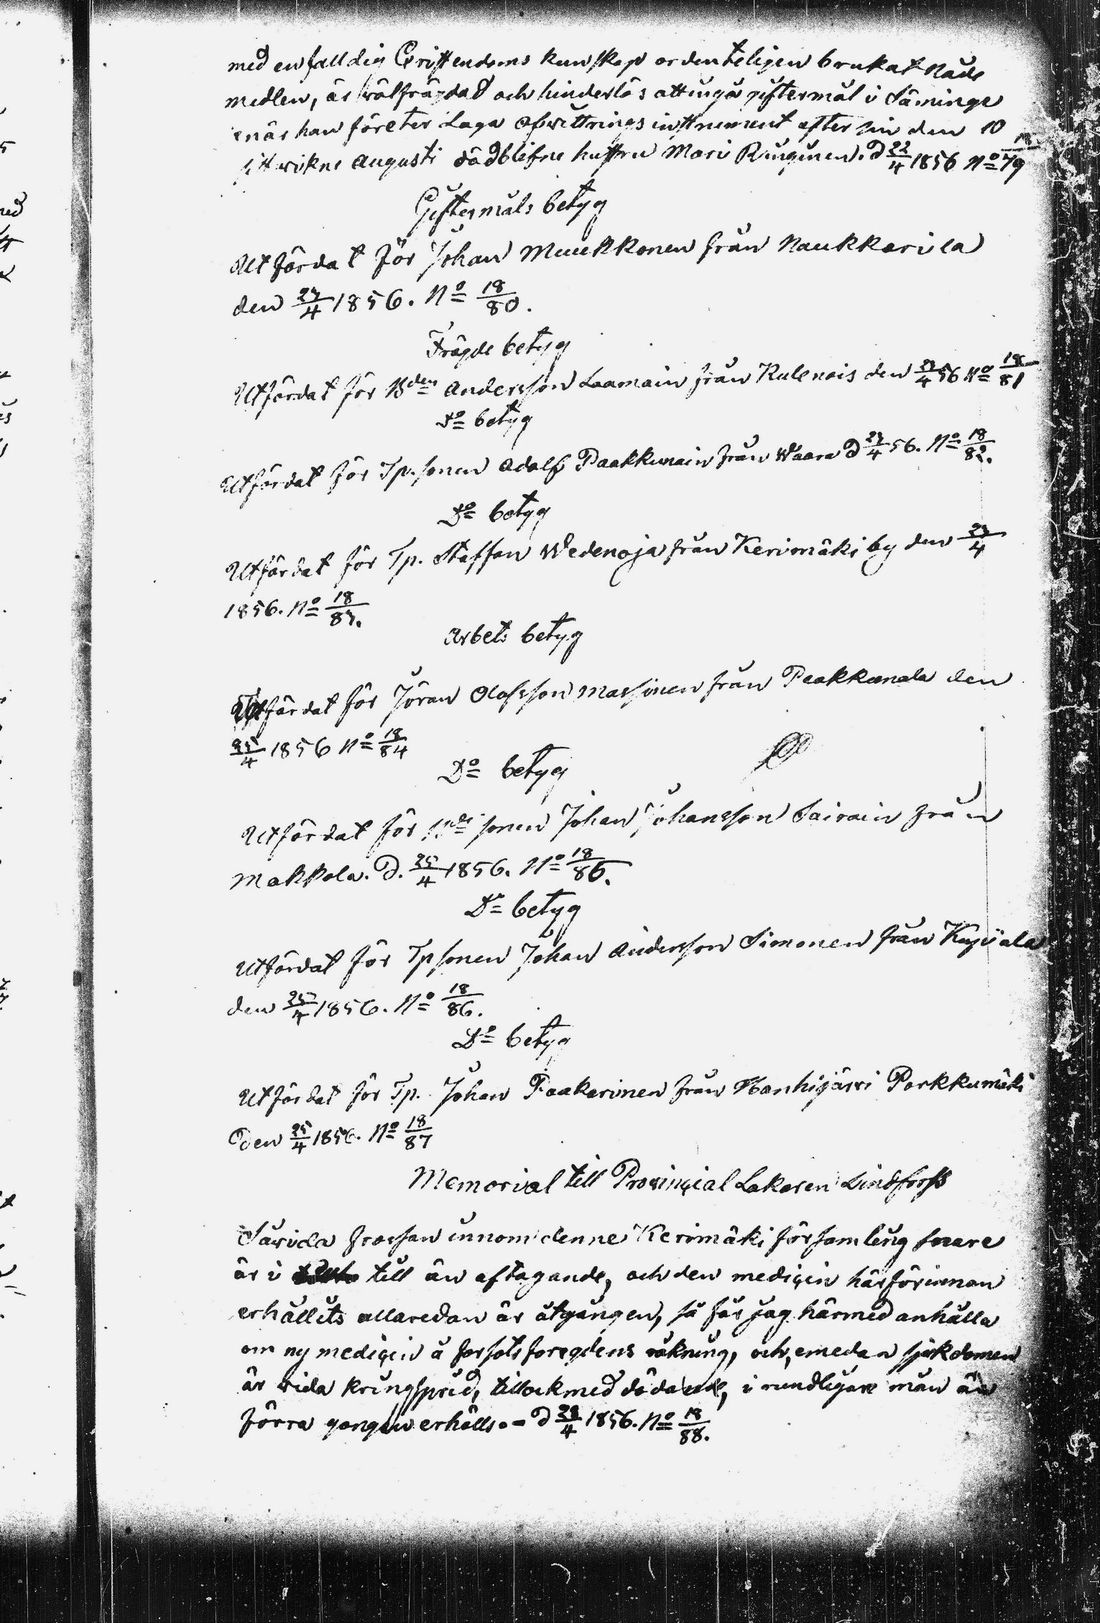 med enfalldig Christendoms kunskap ordenteligen brukat Nåde
medlen, är wälfrägdad och hinderlös att ingå giftermål i Säminge
enär han företer Laga afwittrings instrument efter sin den 10
sistwikne Augusti dödblifne hustru Mari D 22/4 1856 No 18/79
Giftermåls betyg
Utfärdat för Johan Muukkonen från Naukkarila
den 23/4 1856. No 18/80.
Frägde betyg
Utfärdat för Andersson Laamain från Kulenois den 23/4 56 No 18/81
Do betyg
Utfärdat för Tp.sonen Adolf Paakkunain från Waara D 23/4 56. No 18/82.
Do betyg
Utfärdat för Tp. Staffan Wedenoja från Kerimäki by den 23/4
1856. No 18/83.
Arbets betyg
Utfärdat för Jöran Olofsson Massinen från Paakkunala den
25/4 1856 No 18/84
Do betyg
Utfärdat för sonen Johan Johansson Sairain från
Makkola. D. 25/4 1856. No 18/85.
Do betyg
Utfärdat för Tpsonen Johan Andersson Simonen från
den 25/4 1856. No 18/86.
Do betyg
Utfärdat för Tp. Johan Paakarinen från Hanhijärvi Porkkumäki
Den 25/4 1856. No 18/87
Memorial till Provincial Läkaren Lindforss
Såvida frossan innom denne Kerimäki församling snare
är i till än aftagande, och den medicin härförinnan
erhållits allaredan är åtgången, så får jag härmed anhålla
om ny medicin å räkning, och, emedan sjukdomen
är vida kringspridd, tillockmed dödande, i rundligare mån än
förra gången erhölls. - D 28/4 1856. No 18/88.